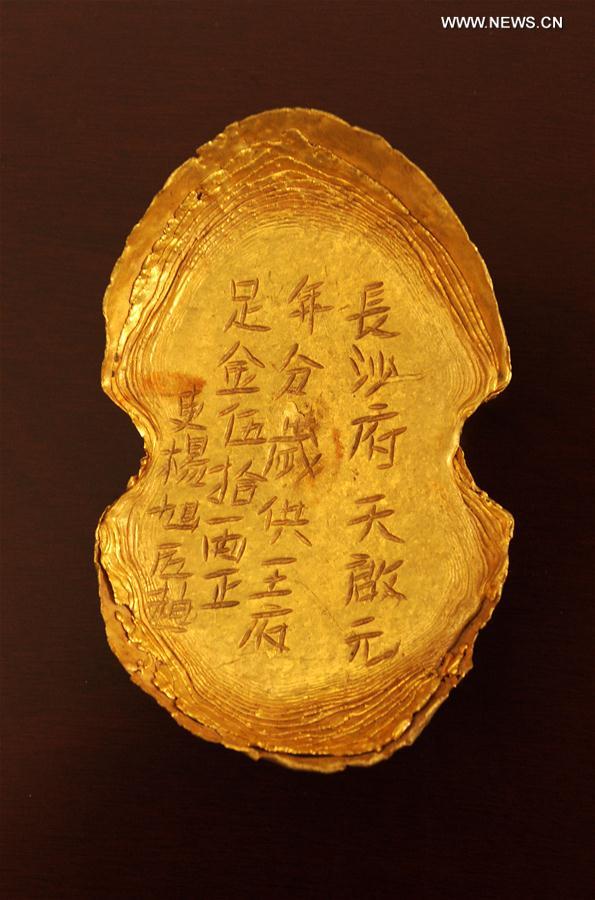 WWW.NEWS.CN
長沙府天啟元
年分歲供王府
足金伍拾兩正
吏楊旭匠趙